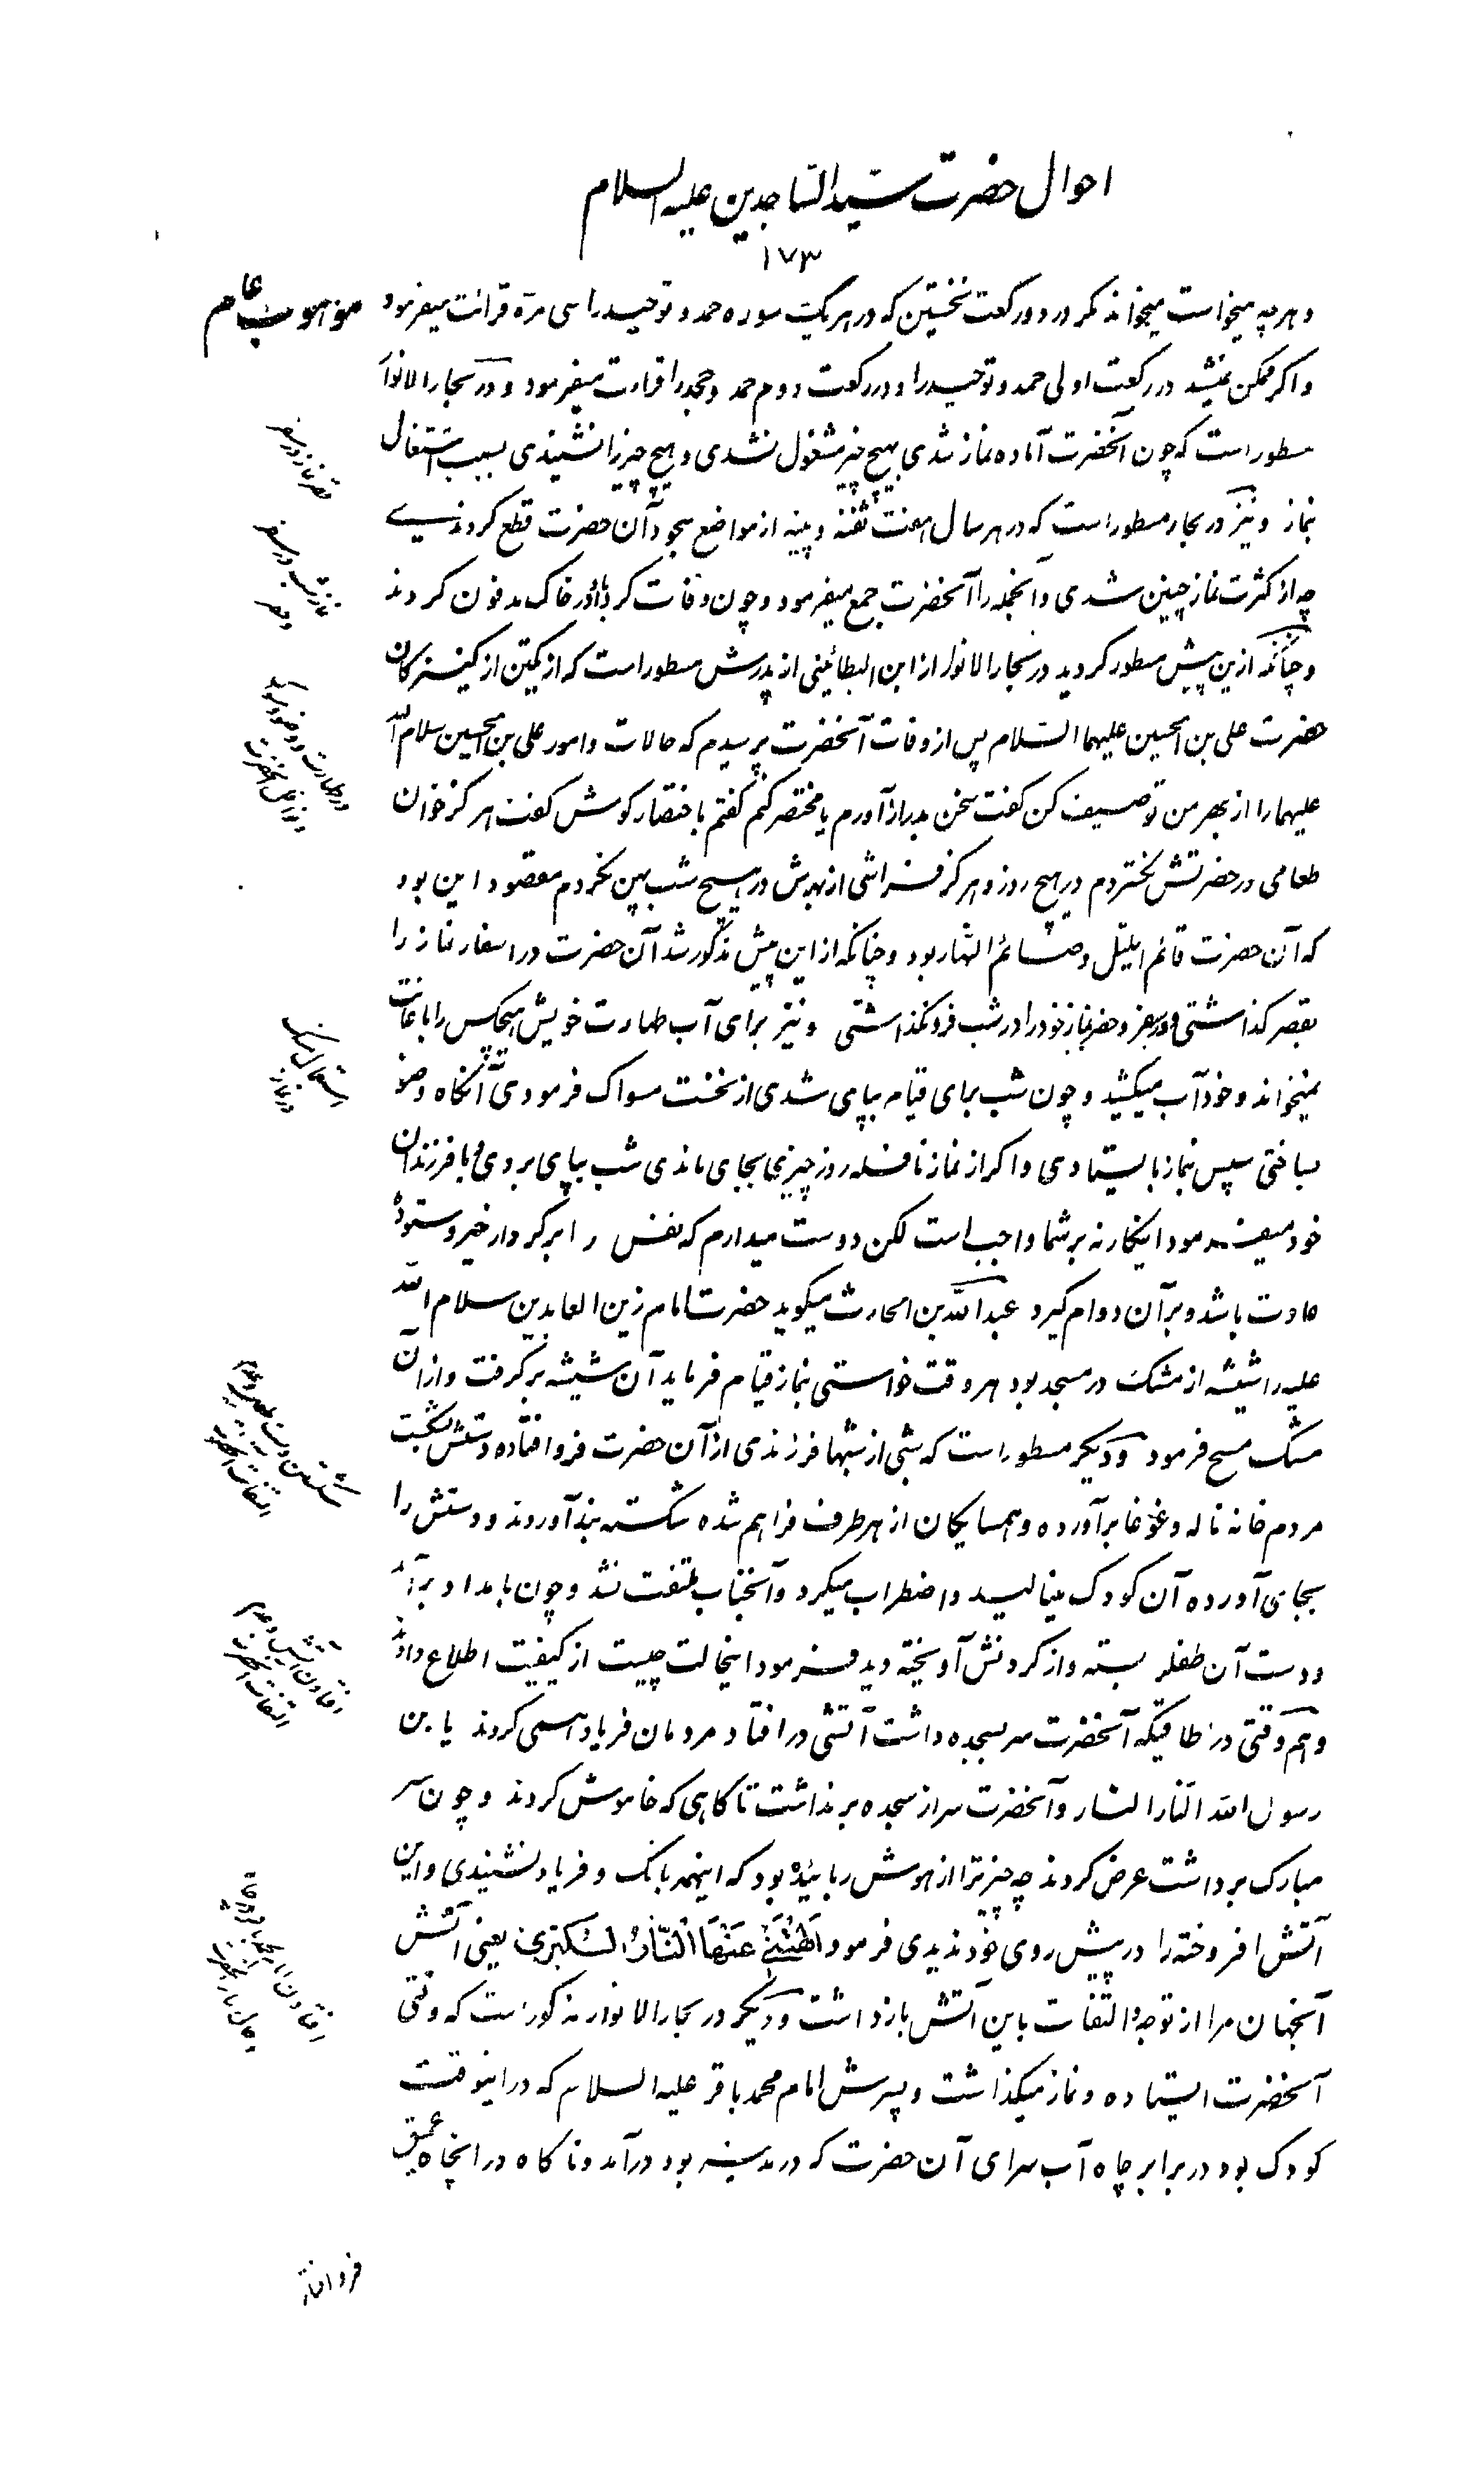 احوال حضرت سیّد السّاجدین علیه السلام
۱۷۳
و هر چه میخواست میخواند مگر در دو رکعت نخستین که در هر یک سوره حمد و توحید را سی مرّه قرائت میفرمود
و اگر ممکن نمیشد در رکعت اولی حمد و توحید را و در رکعت دوم حمد و جحد را قرائت میفرمود و در بحار الانوار
مسطور است که چون آنحضرت آماده نماز شدی بهیچ چیز مشغول نشدی و هیچ چیز را نشنیدی بسبب اشتغال
نماز و نیز در بحار مسطور است که در هر سال هفت ثفنه و پینه از مواضع سجود آن حضرت قطع کردندی
چه از کثرت نماز چنین شدی و آنجمله را آنحضرت جمع میفرمود و چون وفات کرد با او در خاک مدفون کردند
و چنانکه ازین پیش مسطور گردید در بحار الانوار از ابن البطائنی از پدرش مسطور است که از یکتن از کنیزکان
حضرت علی بن الحسین علیهما السّلام پس از وفات آنحضرت پرسیدم که حالات و امور علی بن الحسین سلام الله
علیهما را از بهر من توصیف کن گفت سخن بدراز آورم یا مختصر کنم گفتم باختصار کوش گفت هرگز خوان
طعامی در حضرتش نگستردم در هیچ روز و هرگز فراشی از بهرش در هیچ شب پهن نکردم مقصود این بود
که آن حضرت قائم اللیل و صائم النّهار بود و چنانکه از این پیش مذکور شد آن حضرت در اسفار نماز را
بقصر گذاشتی و در سفر و حضر نماز خود را در شب فرو نگذاشتی و نیز برای آب طهارت خویش هیچکس را باعانت
نمیخواند و خود آب میکشید و چون شب برای قیام بپای شدی از نخست مسواک فرمودی آنگاه وضو
بساختی سپس بنماز بایستادی و اگر از نماز نافله روز چیزی بجای ماندی شب بپای بردی و با فرزندان
خود میفرمود اینکار نه بر شما واجب است لکن دوست میدارم که نفس را بر کردار خیر و ستوده
عادت باشد و بر آن دوام گیرد عبد الله بن الحارث میگوید حضرت امام زین العابدین سلام الله
علیه را شیشه از مشک در مسجد بود هر وقت خواستی بنماز قیام فرماید آن شیشه برگرفت و از آن
مشک مسح فرمود و دیگر مسطور است که شبی از شبها فرزندی از آن حضرت فرو افتاده دستش بشکست
مردم خانه ناله و غوغا برآورده و همسایگان از هر طرف فراهم شده شکسته بند آوردند و دستش را
بجای آورده آن کودک مینالید و اضطراب میکرد و آنجناب ملتفت نشد و چون بامداد برآمد
و دست آن طفل بسته و از گردنش آویخته دید فرمود اینحالت چیست از کیفیت اطلاع دادند
و هم وقتی در اطاقیکه آنحضرت سر بسجده داشت آتشی در افتاد مردمان فریاد همی کردند یا بن
رسول الله النّار النّار و آنحضرت سر از سجده برنداشت تا گاهی که خاموش کردند و چون سر
مبارک برداشت عرض کردند چه چیز ترا از هوش ربائیده بود که اینهمه بانگ و فریاد نشنیدی و این
آتش افروخته را در پیش روی خود ندیدی فرمود اَلْهَتْنی عَنْهَا النّارُ الْکُبْری یعنی آتش
آنجهان مرا از توجه و التفات باین آتش بازداشت و دیگر در بحار الانوار مذکور است که وقتی
آنحضرت ایستاده و نماز میگذاشت و پسرش امام محمد باقر علیه السلام که در اینوقت
کودک بود در برابر چاه آب سرای آن حضرت که در مدینه بود درآمد و ناگاه در انچاه عمیق
قصر نماز در سفر
نماز شب در سفر
و حضر
استعمال مشک
در نماز
افتادن آتش و عدم
التفات آنحضرت
فرو افتاد